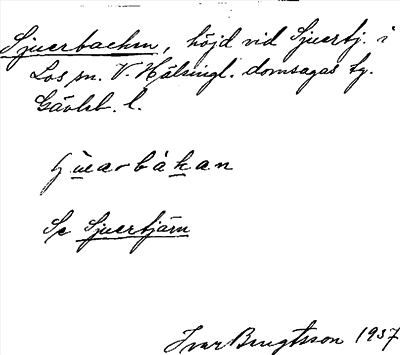 Sjuerbacken, höjd vid Sjuertj. i
Los sn. V. Hälsingl. domsagas tg.
Gävleb. l.
bàkan
Se Sjuertjärn
Ivar Bengtsson 1937